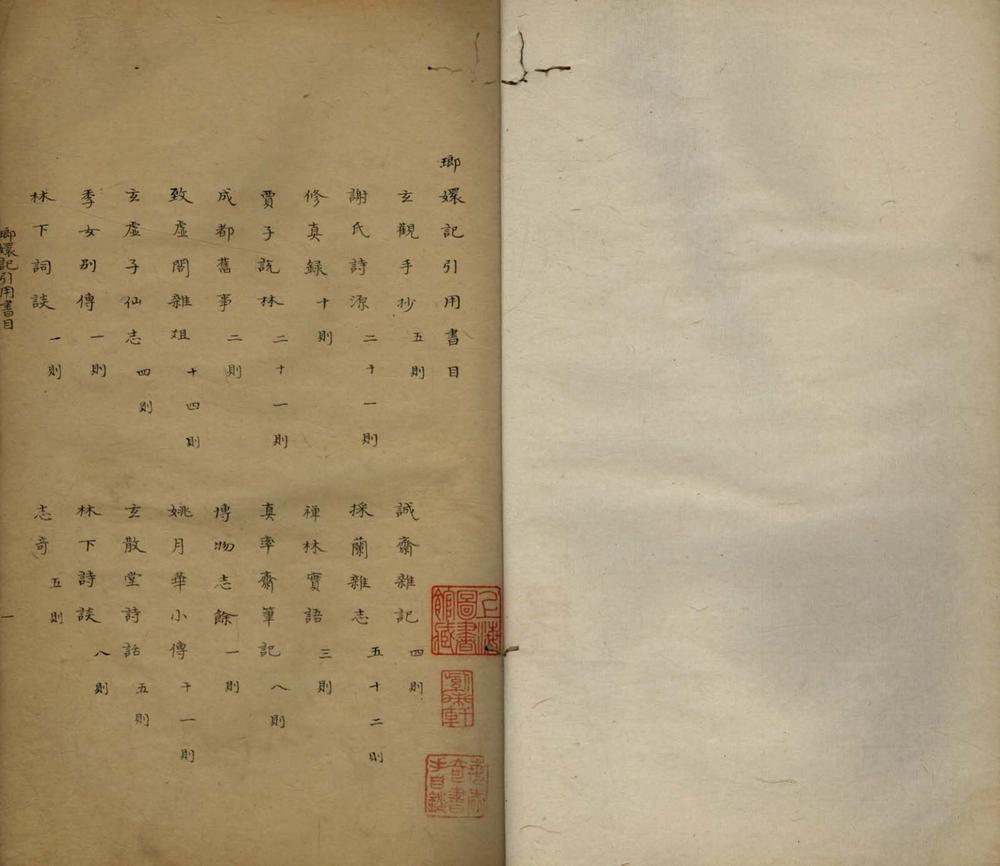 瑯嬛記引用書目
玄觀手抄 五則 誠齋雜記 四則
謝氏詩源 二十一則 採蘭雜志 五十二則
修真錄 十則 禪林實語 三則
賈子說林 二十一則 真率齋筆記 八則
成都舊事 二則 博物志餘 一則
致虛閣雜俎 十四則 姚月華小傳 十一則
玄虛子仙志 四則 玄散堂詩話 五則
季女別傳 一則 林下詩談 八則
林下詞談 一則 志奇 五則
瑯嬛記引用書目 一
上海圖書館藏